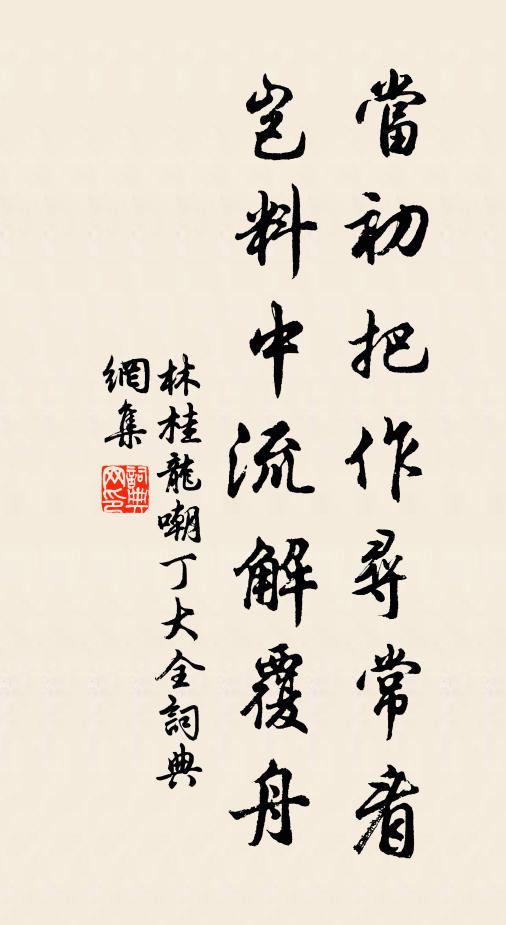 當初把作尋常看
豈料中流解覆舟
林桂龍嘲丁大全詞典
網集
詞典
网印